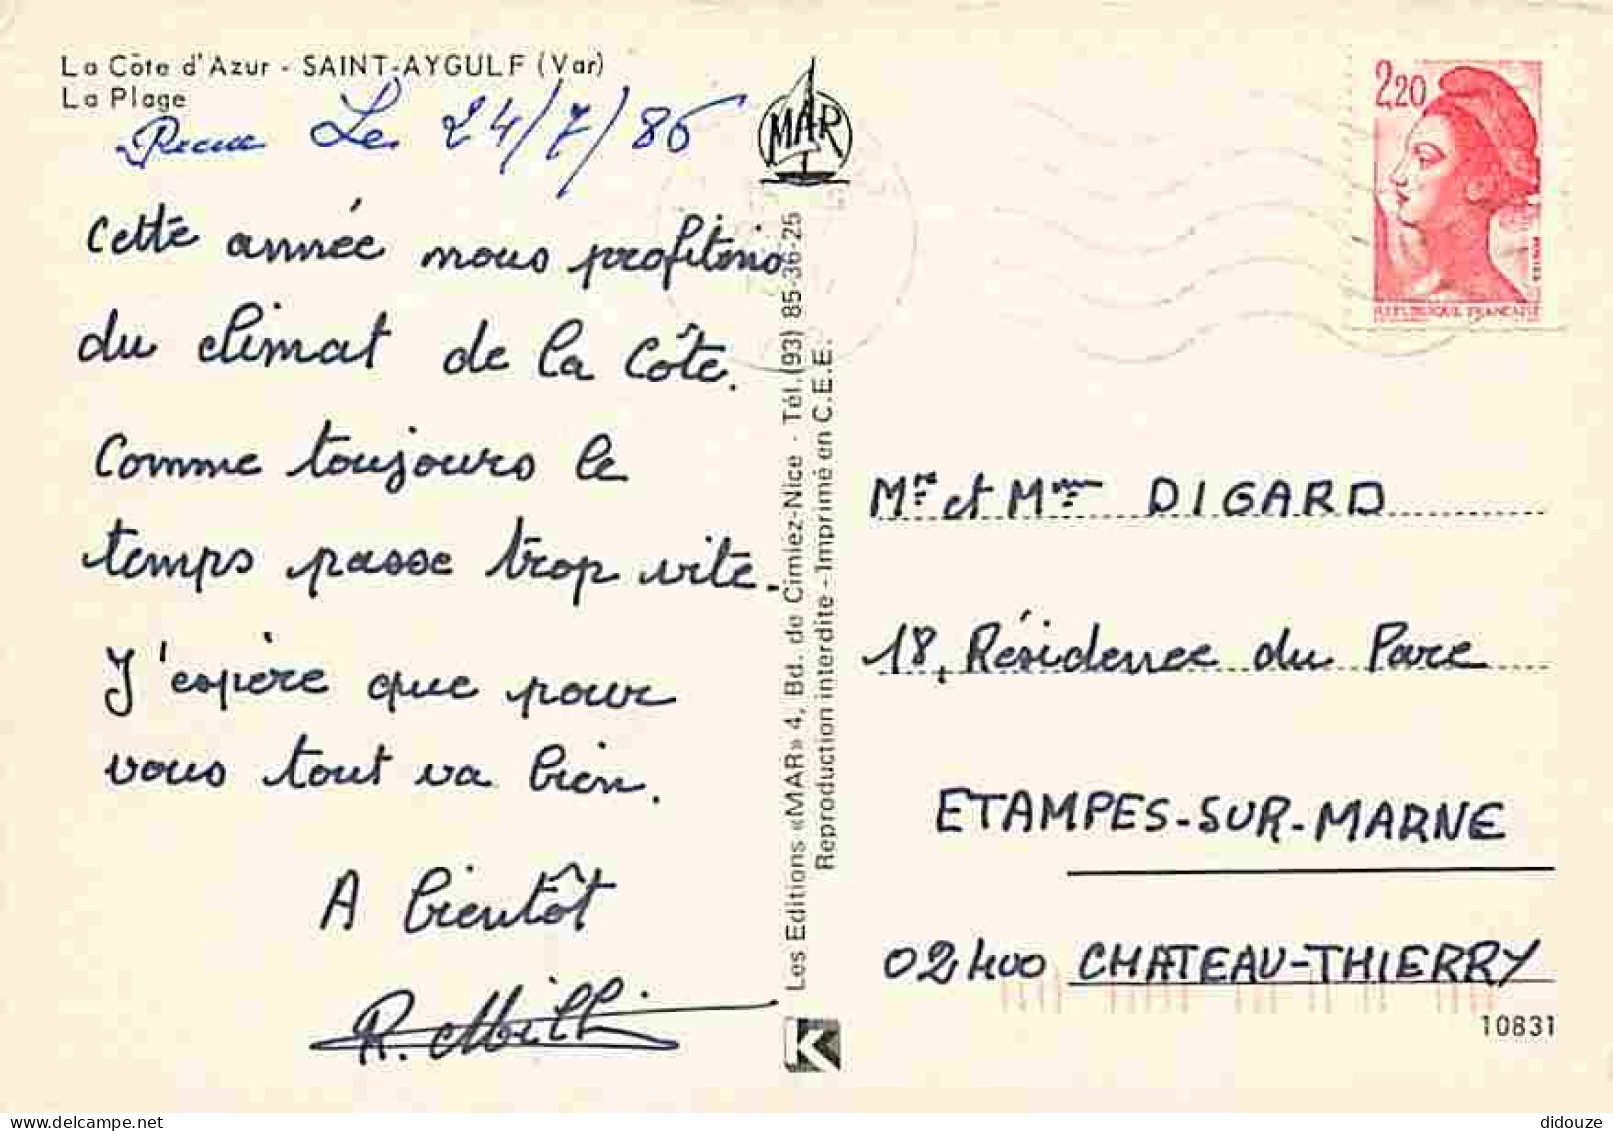 La Côte d'Azur - SAINT-AYGULF (Var)
La Plage
Recue Le 24/7/86
MAR
2,20
REPUBLIQUE FRANCAISE
Cette année nous profitons
du climat de la Côte.
Comme toujours le
temps passe trop vite.
J'espère que pour
vous tout va bien.
A bientôt
Les Editions «MAR» 4, Bd. de Cimiez-Nice - Tél. (93) 85-36-25
Reproduction interdite - Imprimé en C.E.E.
K
Mr et Mme DIGARD
18, Résidence du Parc
ETAMPES-SUR-MARNE
02400 CHATEAU-THIERRY
10831
didouze @ delcampe.net